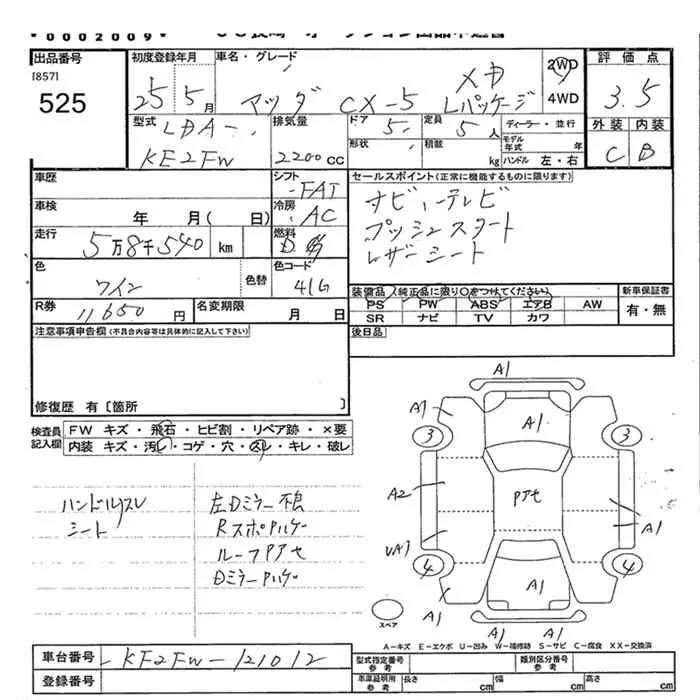 *0002009*
出品番号
[857]
525
初度登録年月
25 5月
車名・グレード
マツダ CX-5 XD Lパッケージ
2WD
4WD
評価点
3.5
型式
LDA-
KE2FW
排気量
2200CC
ドア
5
形状
定員
5人
積載
kg
ディーラー・並行
モデル年式 年
ハンドル 左・右
外装 内装
C B
車歴
シフト
FAT
車検
年 月( 日)
冷房
AC
走行
5万8千540 km
燃料
D
色
ワイン
色替
色コード
41G
R券
11650円
名変期限
月 日
セールスポイント(正常に機能するものに限ります)
ナビ、テレビ
プッシュスタート
レザーシート
装備品(純正品に限り○をつけてください)
PS PW ABS エアB AW
SR ナビ TV カワ
新車保証書
有・無
後日品
注意事項申告欄(不具合内容等は具体的に記入して下さい)
修復歴 有〔箇所 〕
検査員記入欄
FW キズ・飛石・ヒビ割・リペア跡・×要
内装 キズ・汚レ・コゲ・穴・スレ・キレ・破レ
ハンドルスレ
シート
左Dミラー不良
ルーフPアセ
A1
A1
3
3
A2
Pアセ
A1
4
4
A1
X
A1
A1
A1
スペア
A-キズ E-エクボ U-凹み W-補修跡 S-サビ C-腐食 XX-交換済
車台番号
KE2FW-121012
登録番号
型式指定番号
参考
類別区分番号
参考
車庫証明用
参考
長さ cm
幅 cm
高さ cm